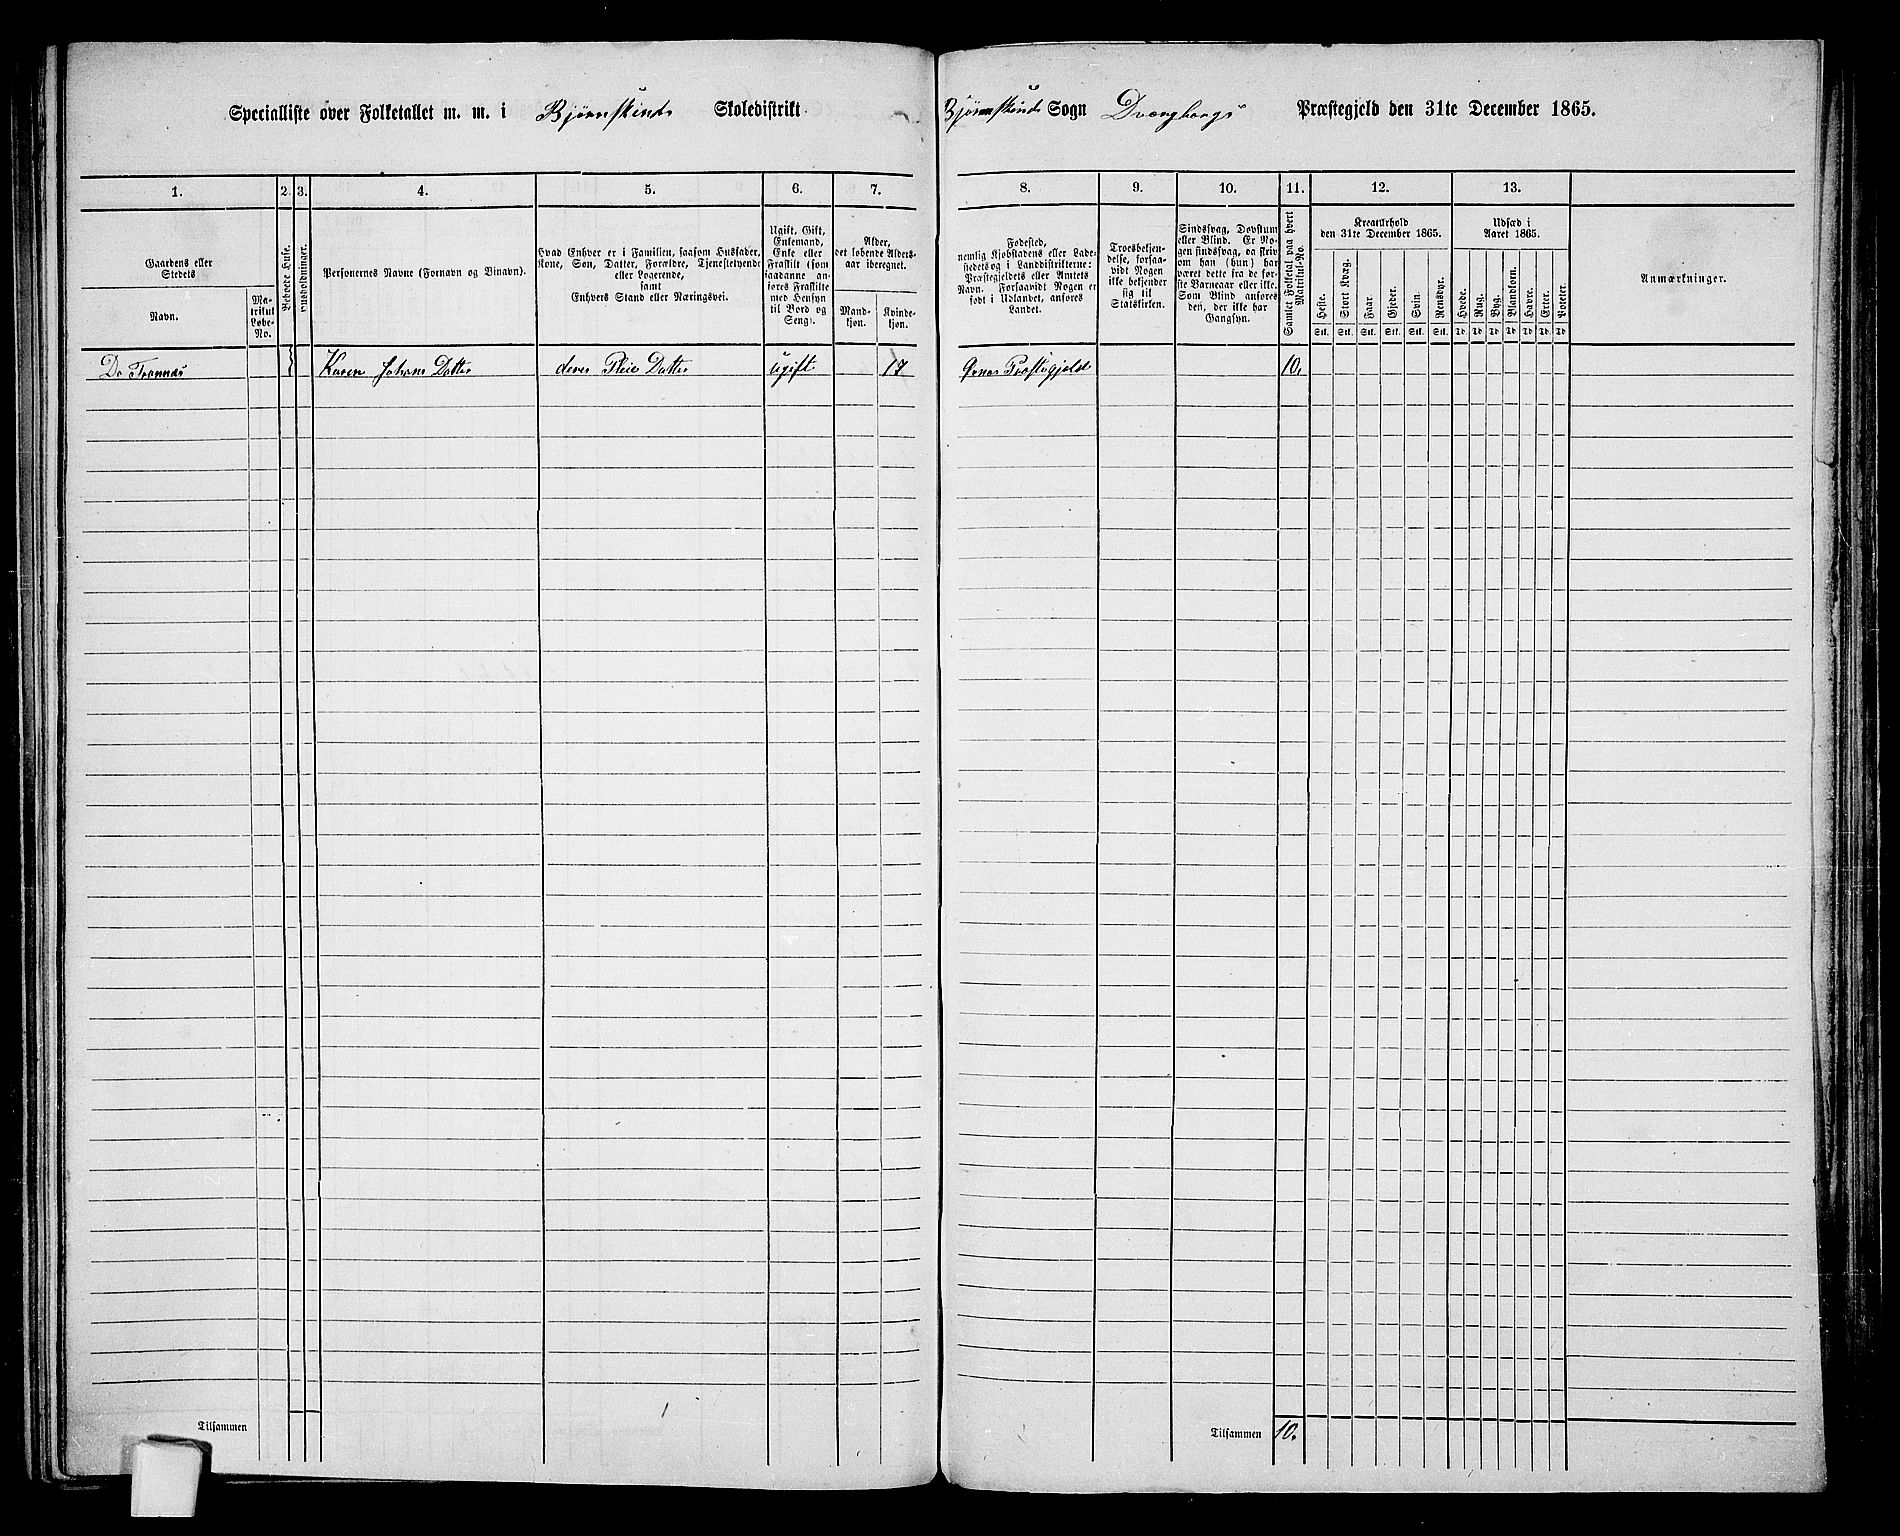 Specialliste over Folketallet m. m. i Bjørnskinds Skoledistrikt Bjørnskinds Sogn Dvergbergs Præstegjeld den 31te December 1865.
1. 2. 3. 4. 5. 6. 7. 8. 9. 10. 11. 12. 13.
Gaardens eller
Stedets
Navn.
Ma-
trikul
Løbe-
No.
Beboede Huse.
Husholdninger.
Personernes Navne (Fornavn og Binavn).
Hvad Enhver er i Familien, saasom Husfader,
Kone, Søn, Datter, Forældre, Tjenestetyende
eller Logerende,
samt
Enhvers Stand eller Næringsvei.
Ugift, Gift,
Enkemand,
Enke eller
Fraskilt (som
saadanne an-
føres Fraskilte
med Hensyn
til Bord og
Seng).
Alder,
det løbende Alders-
aar iberegnet.
Mand-
kjøn.
Kvinde-
kjøn.
Fødested,
nemlig Kjøbstadens eller Lade-
stedets og i Landdistrikterne:
Præstegjeldets eller Amtets
Navn. Forsaavidt Nogen er
født i Udlandet, anføres
Landet.
Troesbekjen-
delse, forsaa-
vidt Nogen
ikke bekjender
sig til
Statskirken.
Sindssvag, Døvstum
eller Blind. Er No-
gen sindssvag, da skriv
om han (hun) har
været dette fra de før-
ste Barneaar eller ikke.
Som Blind anføres
den, der ikke har
Gangsyn.
Samlet Folketal paa hvert
Matrikul-No.
Kreaturhold
den 31te December 1865.
Heste. Stort Kvæg. Faar. Gjeder. Svin. Rensdyr.
Stk. Stk. Stk. Stk. Stk. Stk.
Udsæd i
Aaret 1865.
Hvede. Rug. Byg. Blandkorn. Havre. Erter. Poteter.
Td Td Td Td Td Td Td
Anmærkninger.
Do Trannæs Karen Johans Datter deres Pleie Datter ugift 17 Præstegjeld 10.
Tilsammen
1
Tilsammen 10.